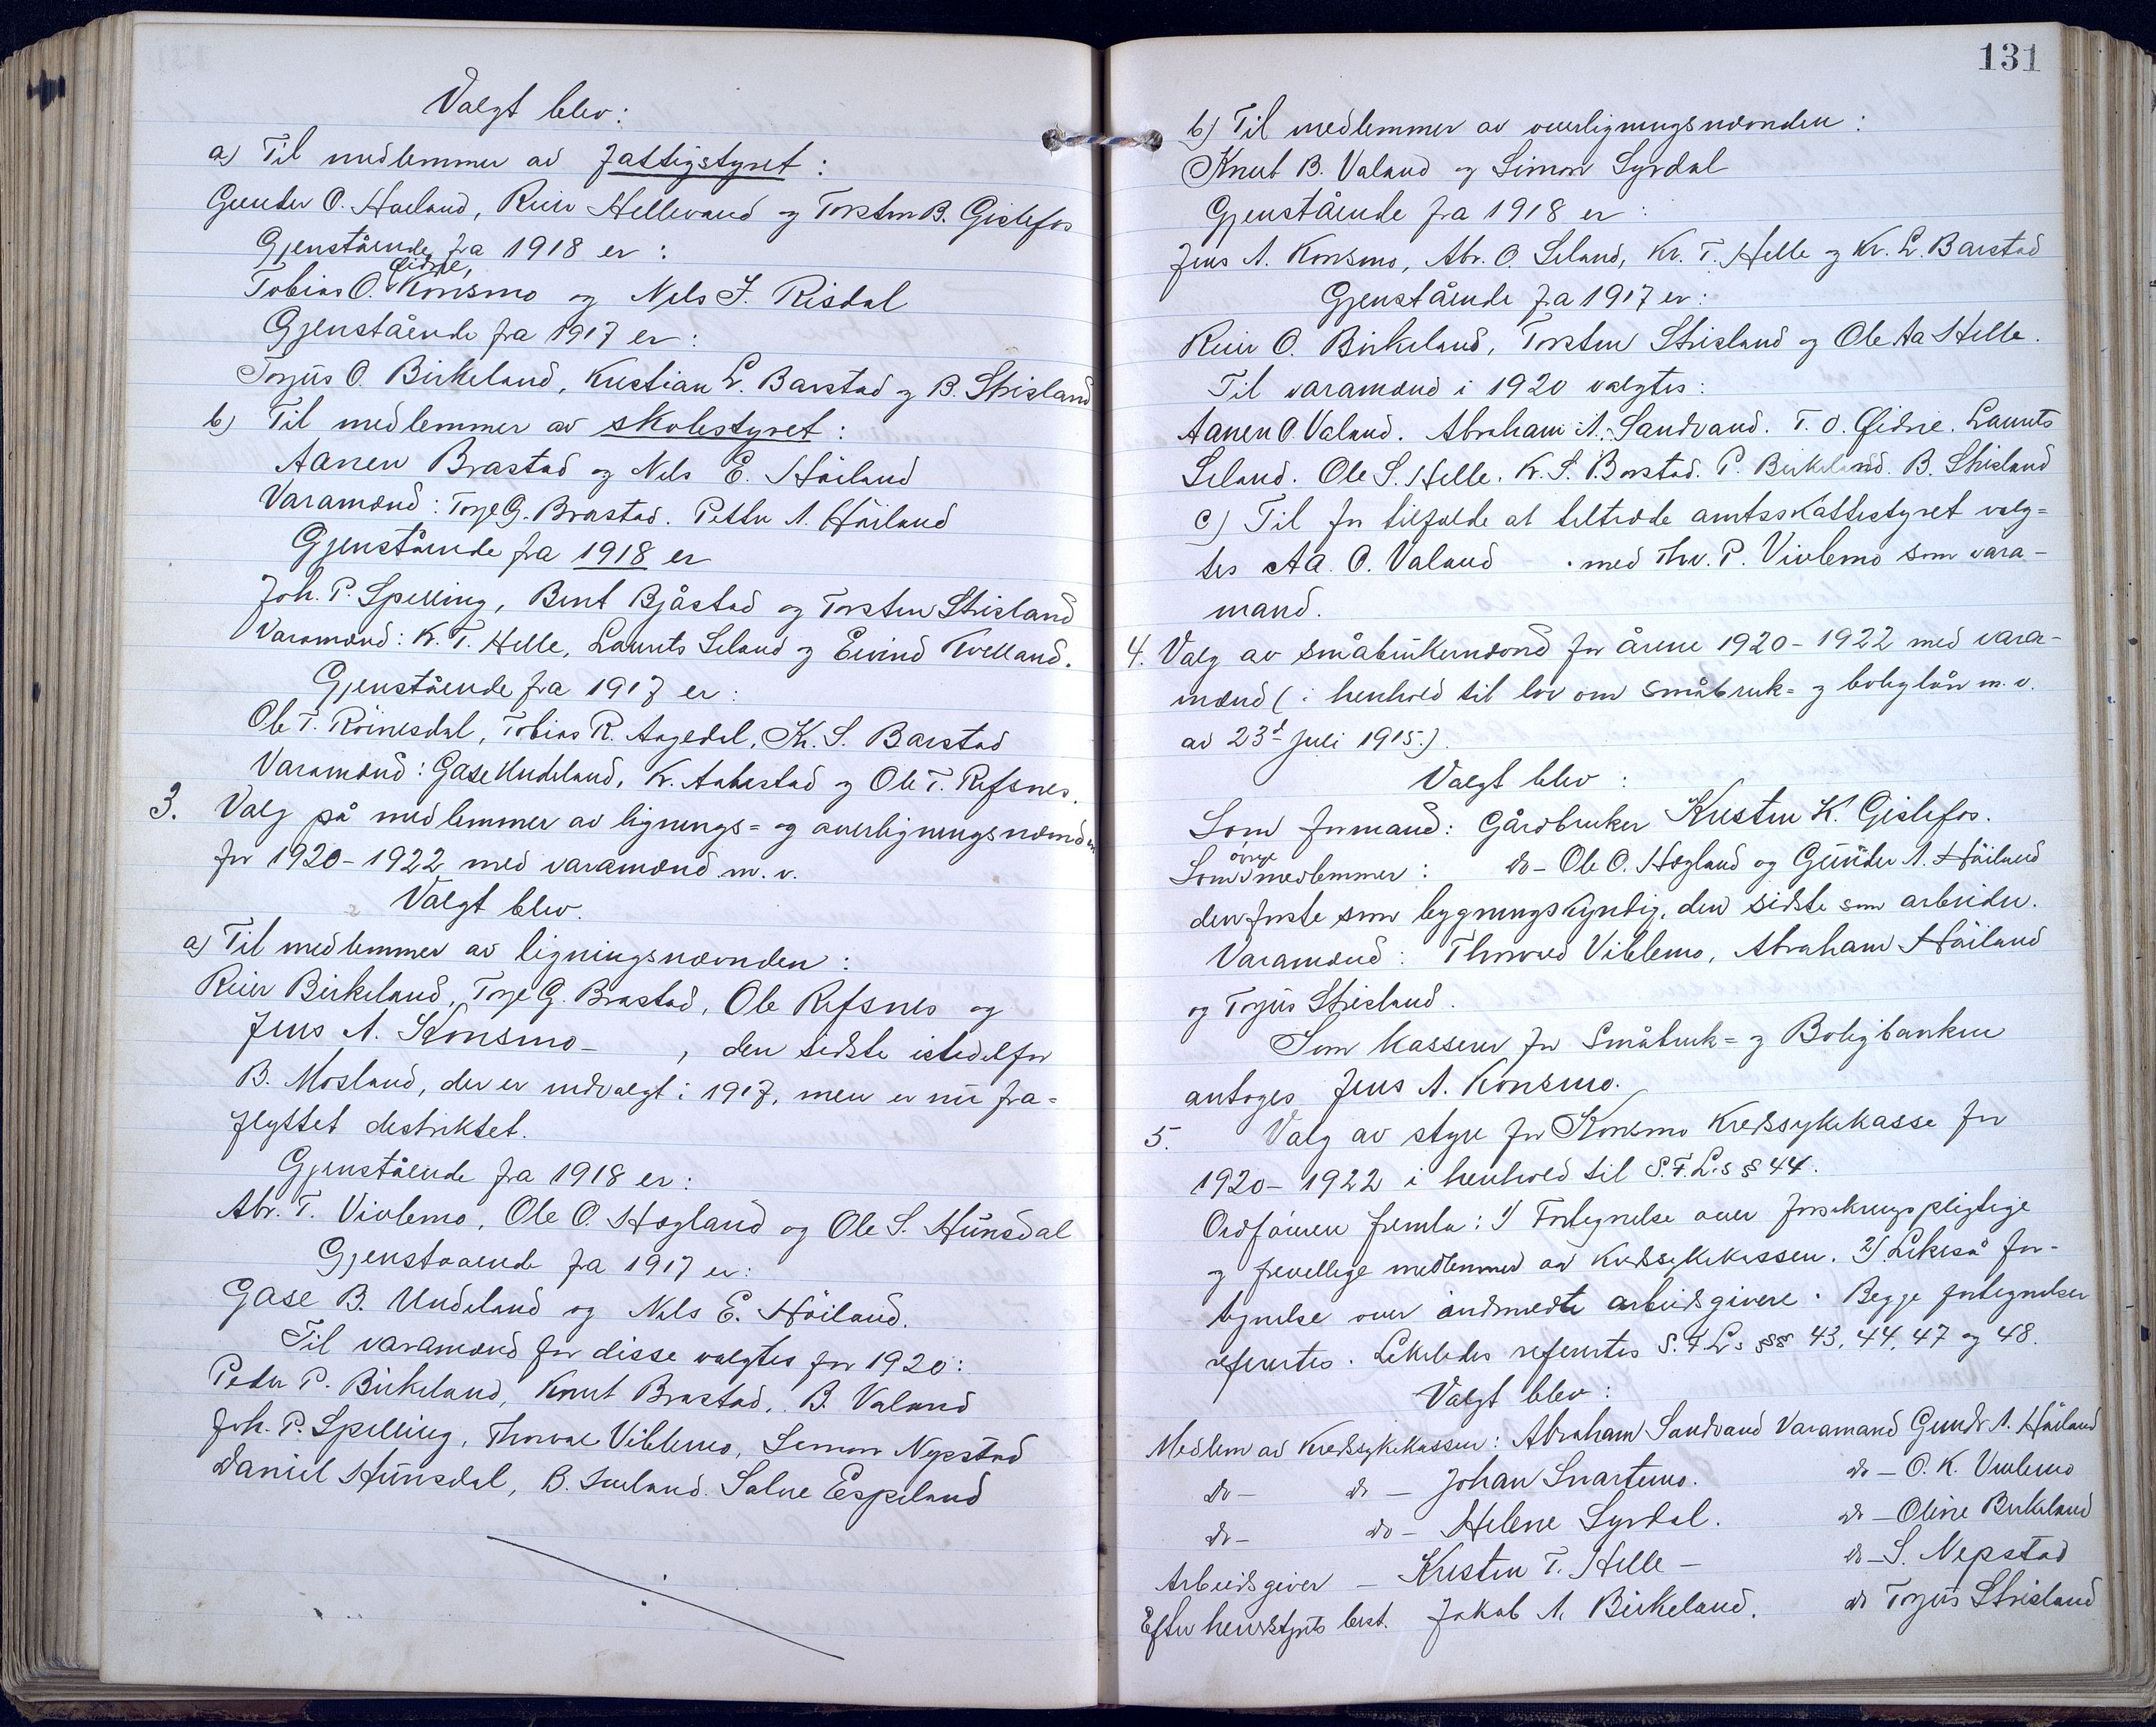 Valgt blev:
a) Til medlemmer av fattigstyret:
Gunder O. Høiland, Reier Hellevand og Torsten B. Gislefos
Gjenstående fra 1918 er:
Øidne,
Tobias O. Konsmo og Nils J. Risdal
Gjenstående fra 1917 er:
Torjus O. Birkeland, Kristian L. Barstad og B. Strisland
b) Til medlemmer av skolestyret:
Aanen Brastad og Nils E. Høiland
Varamænd: Torje G. Brastad. Petter A. Høiland
Gjenstående fra 1918 er
Joh. P. Spelling, Bent Bjåstad og Torsten Strisland
Varamænd: K. T. Helle, Laurits Leland og Eivind Kvelland.
Gjenstående fra 1917 er:
Ole T. Röinesdal, Tobias R. Aagedal, Kr. S. Barstad
Varamænd: Gase Undeland, Kr. Aabestad og Ole T. Refsnes.
3. Valg på medlemmer av lignings= og overligningsnævnden
for 1920-1922 med varamænd m. v.
Valgt blev.
a) Til medlemmer av ligningsnævnden:
Reier Birkeland, Torje G. Brastad, Ole Refsnes og
Jens A. Konsmo - , den sidste istedetfor
B. Mosland, der er indvalgt i 1917, men er nu fra=
flyttet destriktet.
Gjenstående fra 1918 er:
Abr. T. Vivlemo, Ole O. Hægland og Ole S. Hunsdal
Gjenstaaende fra 1917 er:
Gase B. Undeland og Nils E. Höiland.
Til varamænd for disse valgtes for 1920:
Peder P. Birkeland, Knut Brastad, B. Valand
Joh. P. Spelling, Thorval Viblemo, Simon Nepstad
Daniel Hunsdal, B. Leland. Salve Espeland
131
b) Til medlemmer av overligningsnævnden:
Knut B. Valand og Simon Syrdal
Gjenstående fra 1918 er:
Jens A. Konsmo, Abr. O. Leland, Kr. T. Helle og Kr. L. Barstad
Gjenstående fra 1917 er:
Reier O. Birkeland, Torsten Strisland og Ole Aa Helle.
Til varamænd i 1920 valgtes:
Aanen O. Valand. Abraham A. Sandvand. T. O. Øidne. Laurits
Leland. Ole S. Helle. K. S. Barstad. P. Birkeland. B. Strisland
c) Til for tilfælde at tiltræde amtsskattestyret valg=
tes Aa. O. Valand - med Thv. P. Vivlemo som vara-
mand.
4. Valg av småbrukernævnd for årene 1920-1922 med vara-
mænd (i henhold til lov om småbruk= og boliglån m. v.
av 23d Juli 1915.)
Valgt blev:
Som formand: Gårdbruker Kristen K. Gislefos.
øvrige
Som medlemmer: do- Ole O. Hægland og Gunder A. Höiland
den første som bygningskyndig, den sidste som arbeider.
Varamænd: Thorvald Viblemo, Abraham Höiland
og Torjus Strisland.
Som kasserer for Småbruk= og Boligbanken
antoges Jens A. Konsmo.
5. Valg av styre for Konsmo Kredssykekasse for
1920-1922 i henhold til S.F.L.s § 44.
Ordføreren fremla: 1) Fortegnelse over forsikringspligtige
og frivillige medlemmer av Kredssykekassen. 2) Likeså for-
tegnelse over indmeldte arbeidsgivere. Begge fortegnelser
refertes. Likeledes refertes S.F.L.s §§ 43, 44, 47 og 48.
Valgt blev:
Medlem av Kredssykekassen: Abraham Sandvand Varamand Gundr. A. Höiland
do- do- Johan Svartemo. do- O. K. Vivlemo
do- do- Helene Syrdal. do- Oline Birkeland
Arbeidsgiver - Kristen T. Helle - do- S. Nepstad
Efter herredstyrets best. Jakob A. Birkeland. do Torjus Strisland